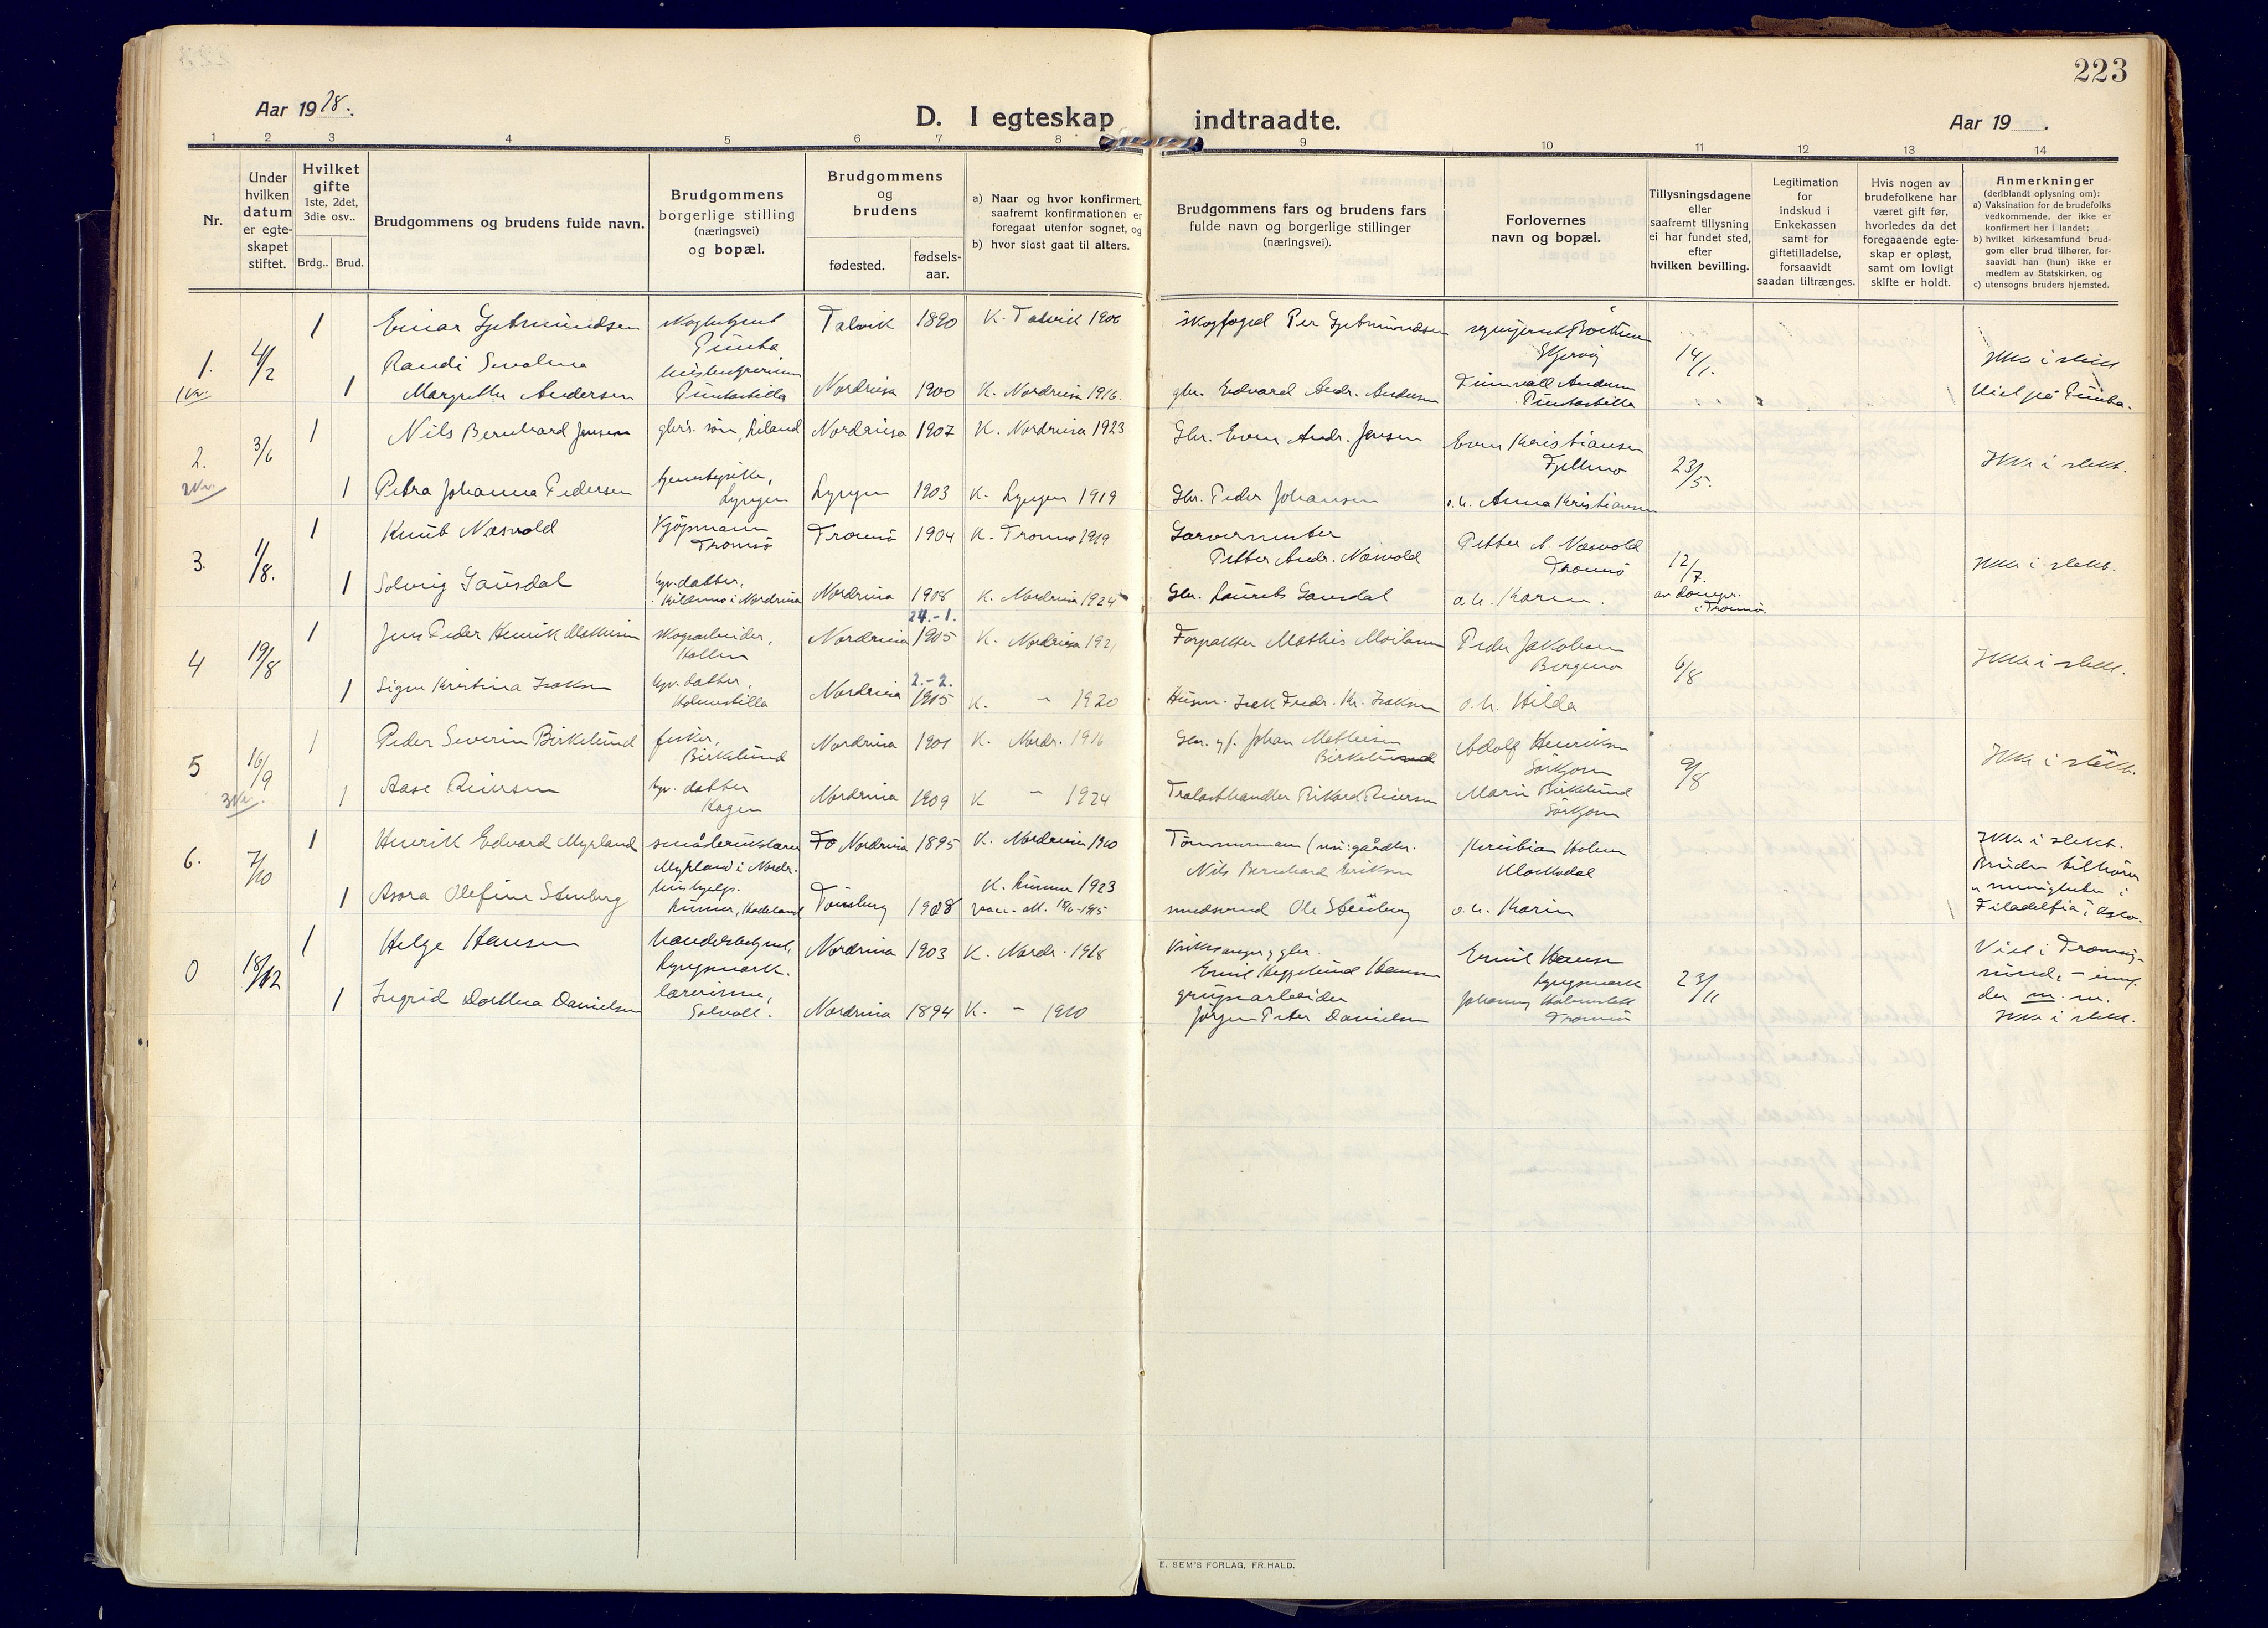 223
Aar 1928.
D. I egteskap indtraadte.
Aar 19 .
1 2 3 4 5 6 7 8 9 10 11 12 13 14
Nr.
Under hvilken datum er egte-skapet stiftet.
Hvilket gifte 1ste, 2det, 3die osv..
Brdg.. Brud.
Brudgommens og brudens fulde navn.
Brudgommens borgerlige stilling (næringsvei) og bopæl.
Brudgommens og brudens
fødested.
fødsels-aar.
a) Naar og hvor konfirmert, saafremt konfirmationen er foregaat utenfor sognet, og
b) hvor sidst gaat til alters.
Brudgommens fars og brudens fars fulde navn og borgerlige stillinger (næringsvei).
Forlovernes navn og bopæl.
Tillysningsdagene eller saafremt tillysning ei har fundet sted, efter hvilken bevilling.
Legitimation for indskud i Enkekassen samt for giftetilladelse, forsaavidt saadan tiltrænges.
Hvis nogen av brudefolkene har været gift før, hvorledes da det foregaaende egte-skap er opløst, samt om lovligt skifte er holdt.
Anmerkninger
(deriblandt oplysning om):
a) Vaksination for de brudefolks vedkommende, der ikke er konfirmert her i landet;
b) hvilket kirkesamfund brud-gom eller brud tilhører, for-saavidt han (hun) ikke er medlem av Statskirken, og
c) utensogns bruders hjemsted.
1. 4/2 1 Einar Gjetmundsen Talvik 1890 K. Talvik 1906 skogfoged Per Gjetmundsen Skjervøy 14/1. Ikke i slekt
Randi
1 Margrethe Andersen Nordreisa 1900 K. Nordreisa 1916. gbr. Edvard Andr. Andersen Viet på Punta.
2. 3/6 1 Nils Bernhard Jensen gbr's. søn, Nordreisa 1907 K. Nordreisa 1923 Gbr. Even Andr. Jensen Even Kristiansen 23/5. Ikke i slekt.
1 Petra Johanna Pedersen Lyngen Lyngen 1903 K. Lyngen 1919 Gbr. Peder Johansen o.h. Anna Kristiansen
3. 1/8. 1 Knut Næsvold Kjøpmann Tromsø Tromsø 1904 K. Tromsø 1919 Garvermester Petter Andr. Næsvold Petter A. Næsvold Tromsø 12/7. Ikke i slekt.
1 Solveig Gausdal hjv. datter, i Nordreisa Nordreisa 1908 K. Nordreisa 1925 Gbr. Laurits Gausdal o.h. Karen. av dompr. i Tromsø.
4 19/8 1 Jens Peder Henrik Mathisen skogarbeider, Nordreisa 24.-1. 1905 K. Nordreisa 1921 Forpakter Mathis Peder Jakobsen Bergmo 6/8 Ikke i slekt.
1 Signe Kristina Isaksen hjv. datter, Nordreisa 2.-2. 1905 K. " 1920 Husm. Isak Fredr. Kr. Isaksen o.h. Hilda
5 16/9 1 Peder Severin Birkelund fisker, Birkelund Nordreisa 1901 K. Nordr. 1916 Gbr. og f. Johan Mathisen Birkelund Adolf Henriksen Sørkjosen 9/8 Ikke i slekt.
1 Aase Reiersen hjv. datter Nordreisa 1909 K " 1924 Trelasthandler Rikard Reiersen Marie Birkelund Sørkjosen
6. 7/10 1 Henrik Edvard Myrland småbruksslærer Myrland i Nordr. Nordreisa 1895 K. Nordreisa 1910 Tømmermann Nils Bernhard Eriksen Kristian Holm Ikke i slekt.
1 Asora Olefine Stenberg hushjelp. Lunner, Hadeland Tønsberg 1908 K. Lunner 1923 smedsvend Ole Stenberg o.h. Karin Bruden tilhører menigheten i Filadelfia i Oslo.
0 18/12 1 Helge Hansen handelsbetjent, Lyngsmark. Nordreisa 1903 K. Nordr. 1918 Kirkesanger og gbr. Emil Heggelund Hansen Emil Hansen Lyngsmark 23/11 Viet i Tromsøysund,
1 Ingrid Dorthea Danielsen lærerinne, Solvoll. Nordreisa 1894 K. " 1910 grubearbeider Jørgen Peter Danielsen Tromsø Ikke i slekt.
E. SEM'S FORLAG, FR.HALD.